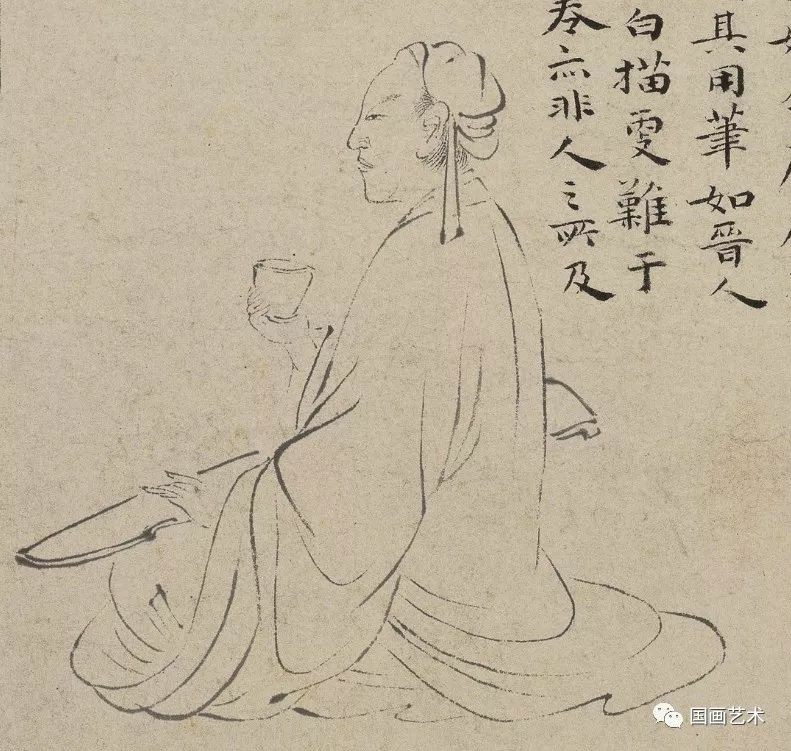 其用筆如晋人
白描更難于
亦非人之所及
国画艺术